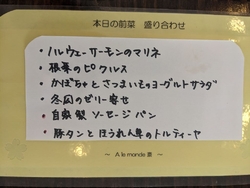 本日の前菜 盛り合わせ
・ノルウェーサーモンのマリネ
・根菜のピクルス
・かぼちゃとさつまいものヨーグルトサラダ
・冬瓜のゼリー寄せ
・自家製ソーセージパン
・豚タンとほうれん草のトルティーヤ
～ A le monde 恵 ～